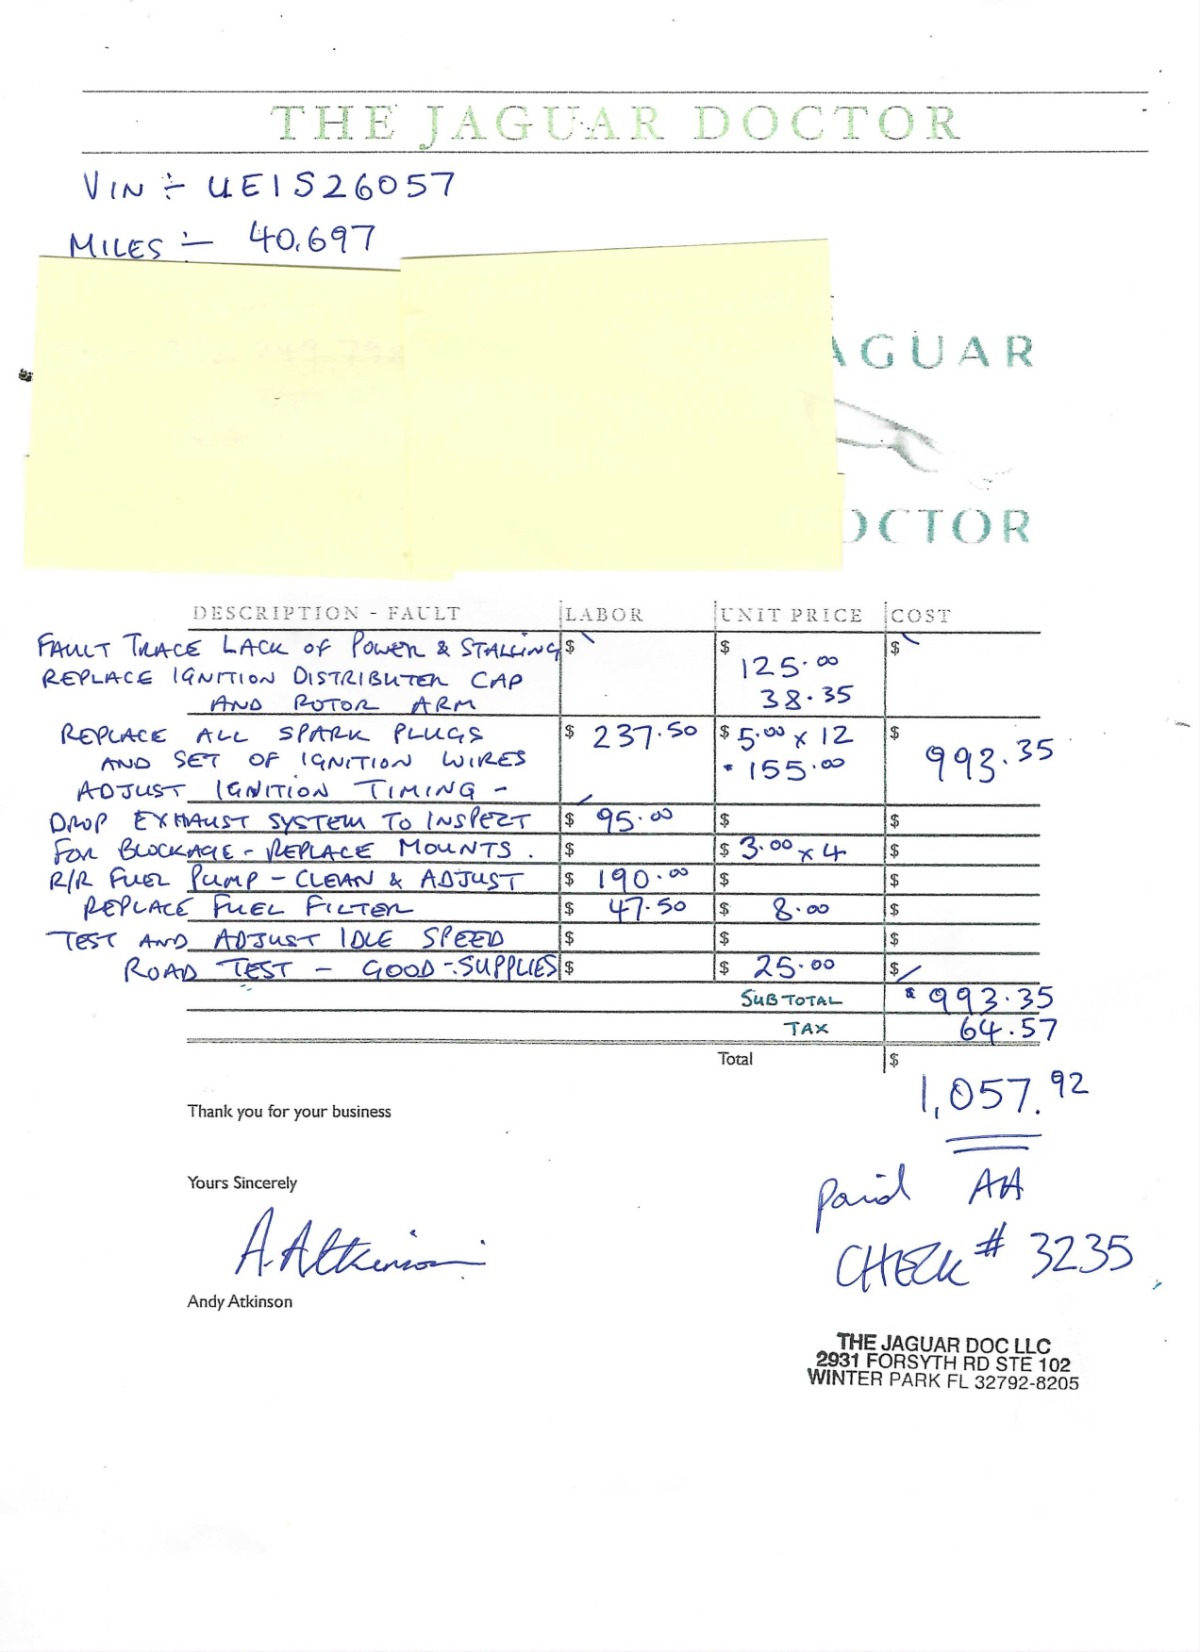 THE JAGUAR DOCTOR
VIN ÷ UE1S26057
MILES :- 40,697
AGUAR
OCTOR
DESCRIPTION - FAULT LABOR UNIT PRICE COST
FAULT TRACE LACK OF POWER & STALLING $ $ $
REPLACE IGNITION DISTRIBUTER CAP 125.00
AND ROTOR ARM 38.35
REPLACE ALL SPARK PLUGS $ 237.50 $ 5.00 x 12 $ 993.35
AND SET OF IGNITION WIRES 155.00
ADJUST IGNITION TIMING -
DROP EXHAUST SYSTEM TO INSPECT $ 95.00 $ $
FOR BLOCKAGE - REPLACE MOUNTS. $ $ 3.00 x 4 $
R/R FUEL PUMP - CLEAN & ADJUST $ 190.00 $ $
REPLACE FUEL FILTER $ 47.50 $ 8.00 $
TEST AND ADJUST IDLE SPEED $ $ $
ROAD TEST - GOOD - SUPPLIES $ $ 25.00 $
SUBTOTAL $ 993.35
TAX 64.57
Total $
1,057.92
Thank you for your business
Yours Sincerely
paid AA
A. Atkinson
CHECK # 3235
Andy Atkinson
THE JAGUAR DOC LLC
2931 FORSYTH RD STE 102
WINTER PARK FL 32792-8205